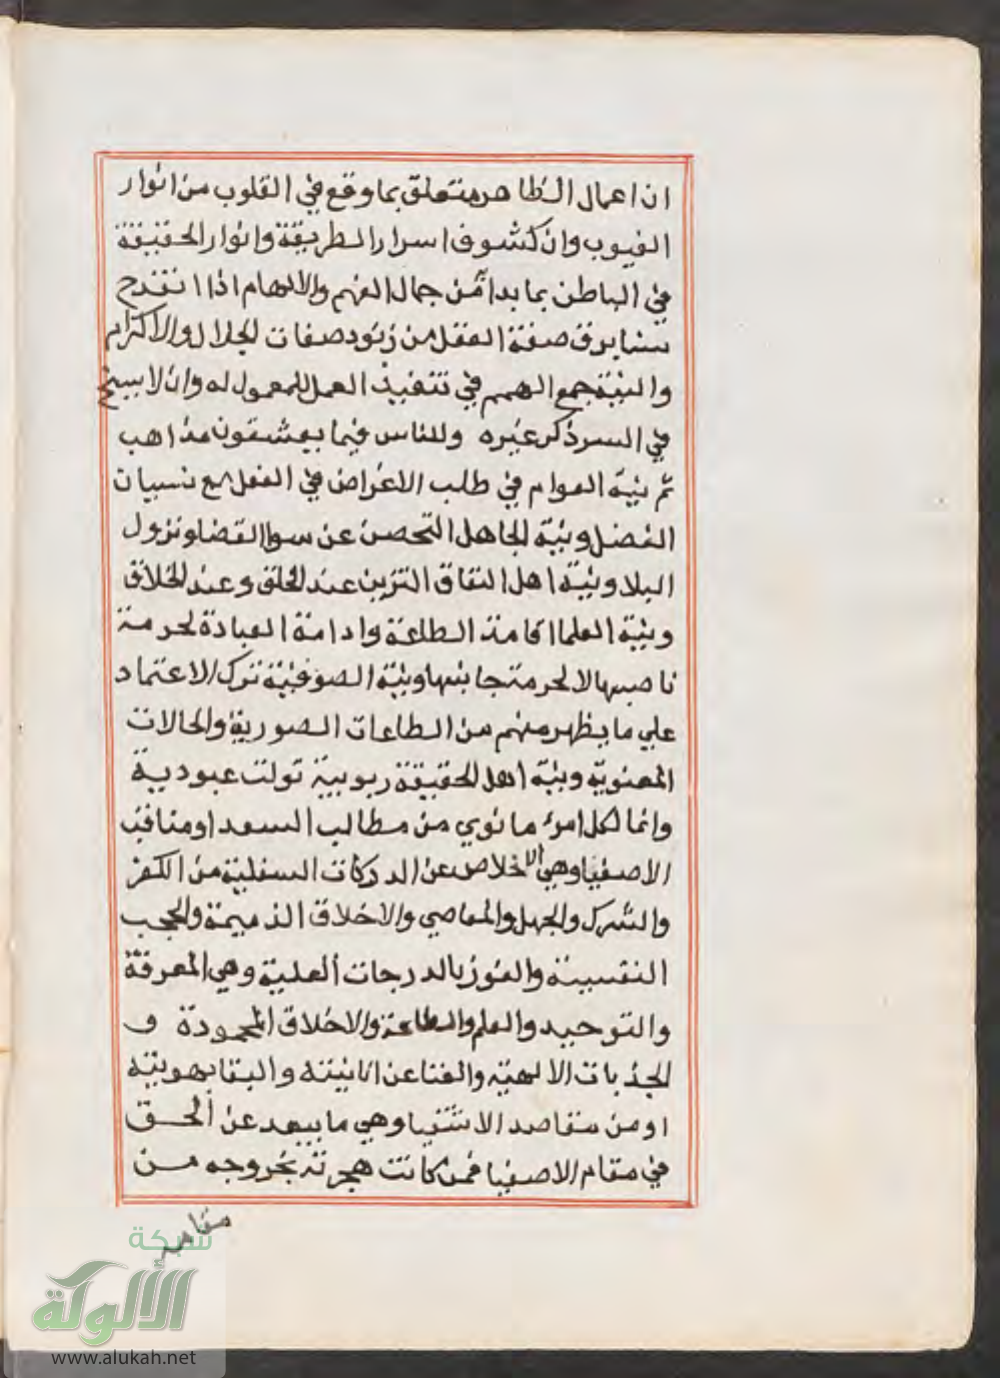 ان اعمال الظاهر متعلق بما وقع في القلوب من انوار
الغيوب وان كشوف اسرار الطريقة وانوار الحقيقة
في الباطن بما بدا من جمال الفهم والالهام اذا انقدح
سنا برق صفة العقل من زنود صفات الجلال والاكرام
والنية جمع الهمم في تنفيذ العمل للمعمول له وان لا يسنح
في السر ذكر غيره وللناس فيما يعشقون مذاهب
ثم نية العوام في طلب الاغراض في الفعل مع نسيان
الفضل ونية الجاهل التحصن عن سوا القضا ونزول
البلا ونية اهل النفاق التزين عند الخلق وعند الخلاق
ونية العلما اقامة الطاعة وادامة العبادة لحرمة
ناصبها لا لحرمة جانبها ونية الصوفية ترك الاعتماد
علي ما يظهر منهم من الطاعات الصورية والحالات
المعنوية ونية اهل الحقيقة ربوبية تولت عبودية
وانما لكل امرء ما نوي من مطالب السعد او مناقب
الاصفيا وهي الاخلاص عن الدركات السفلية من الكفر
والشرك والجهل والمعاصي والاخلاق الذميمة والحجب
النفسية والفوز بالدرجات العلية وهي المعرفة
والتوحيد والعلم والطاعة والاخلاق المحمودة و
الجذبات الالهية والفنا عن انانيته والبقا بهويته
او من مقاصد الاشقيا وهي ما يبعد عن الحق
في مقام الاصفيا فمن كانت هجرته بخروجه من
مقامه
شبكة
الألوكة
www.alukah.net